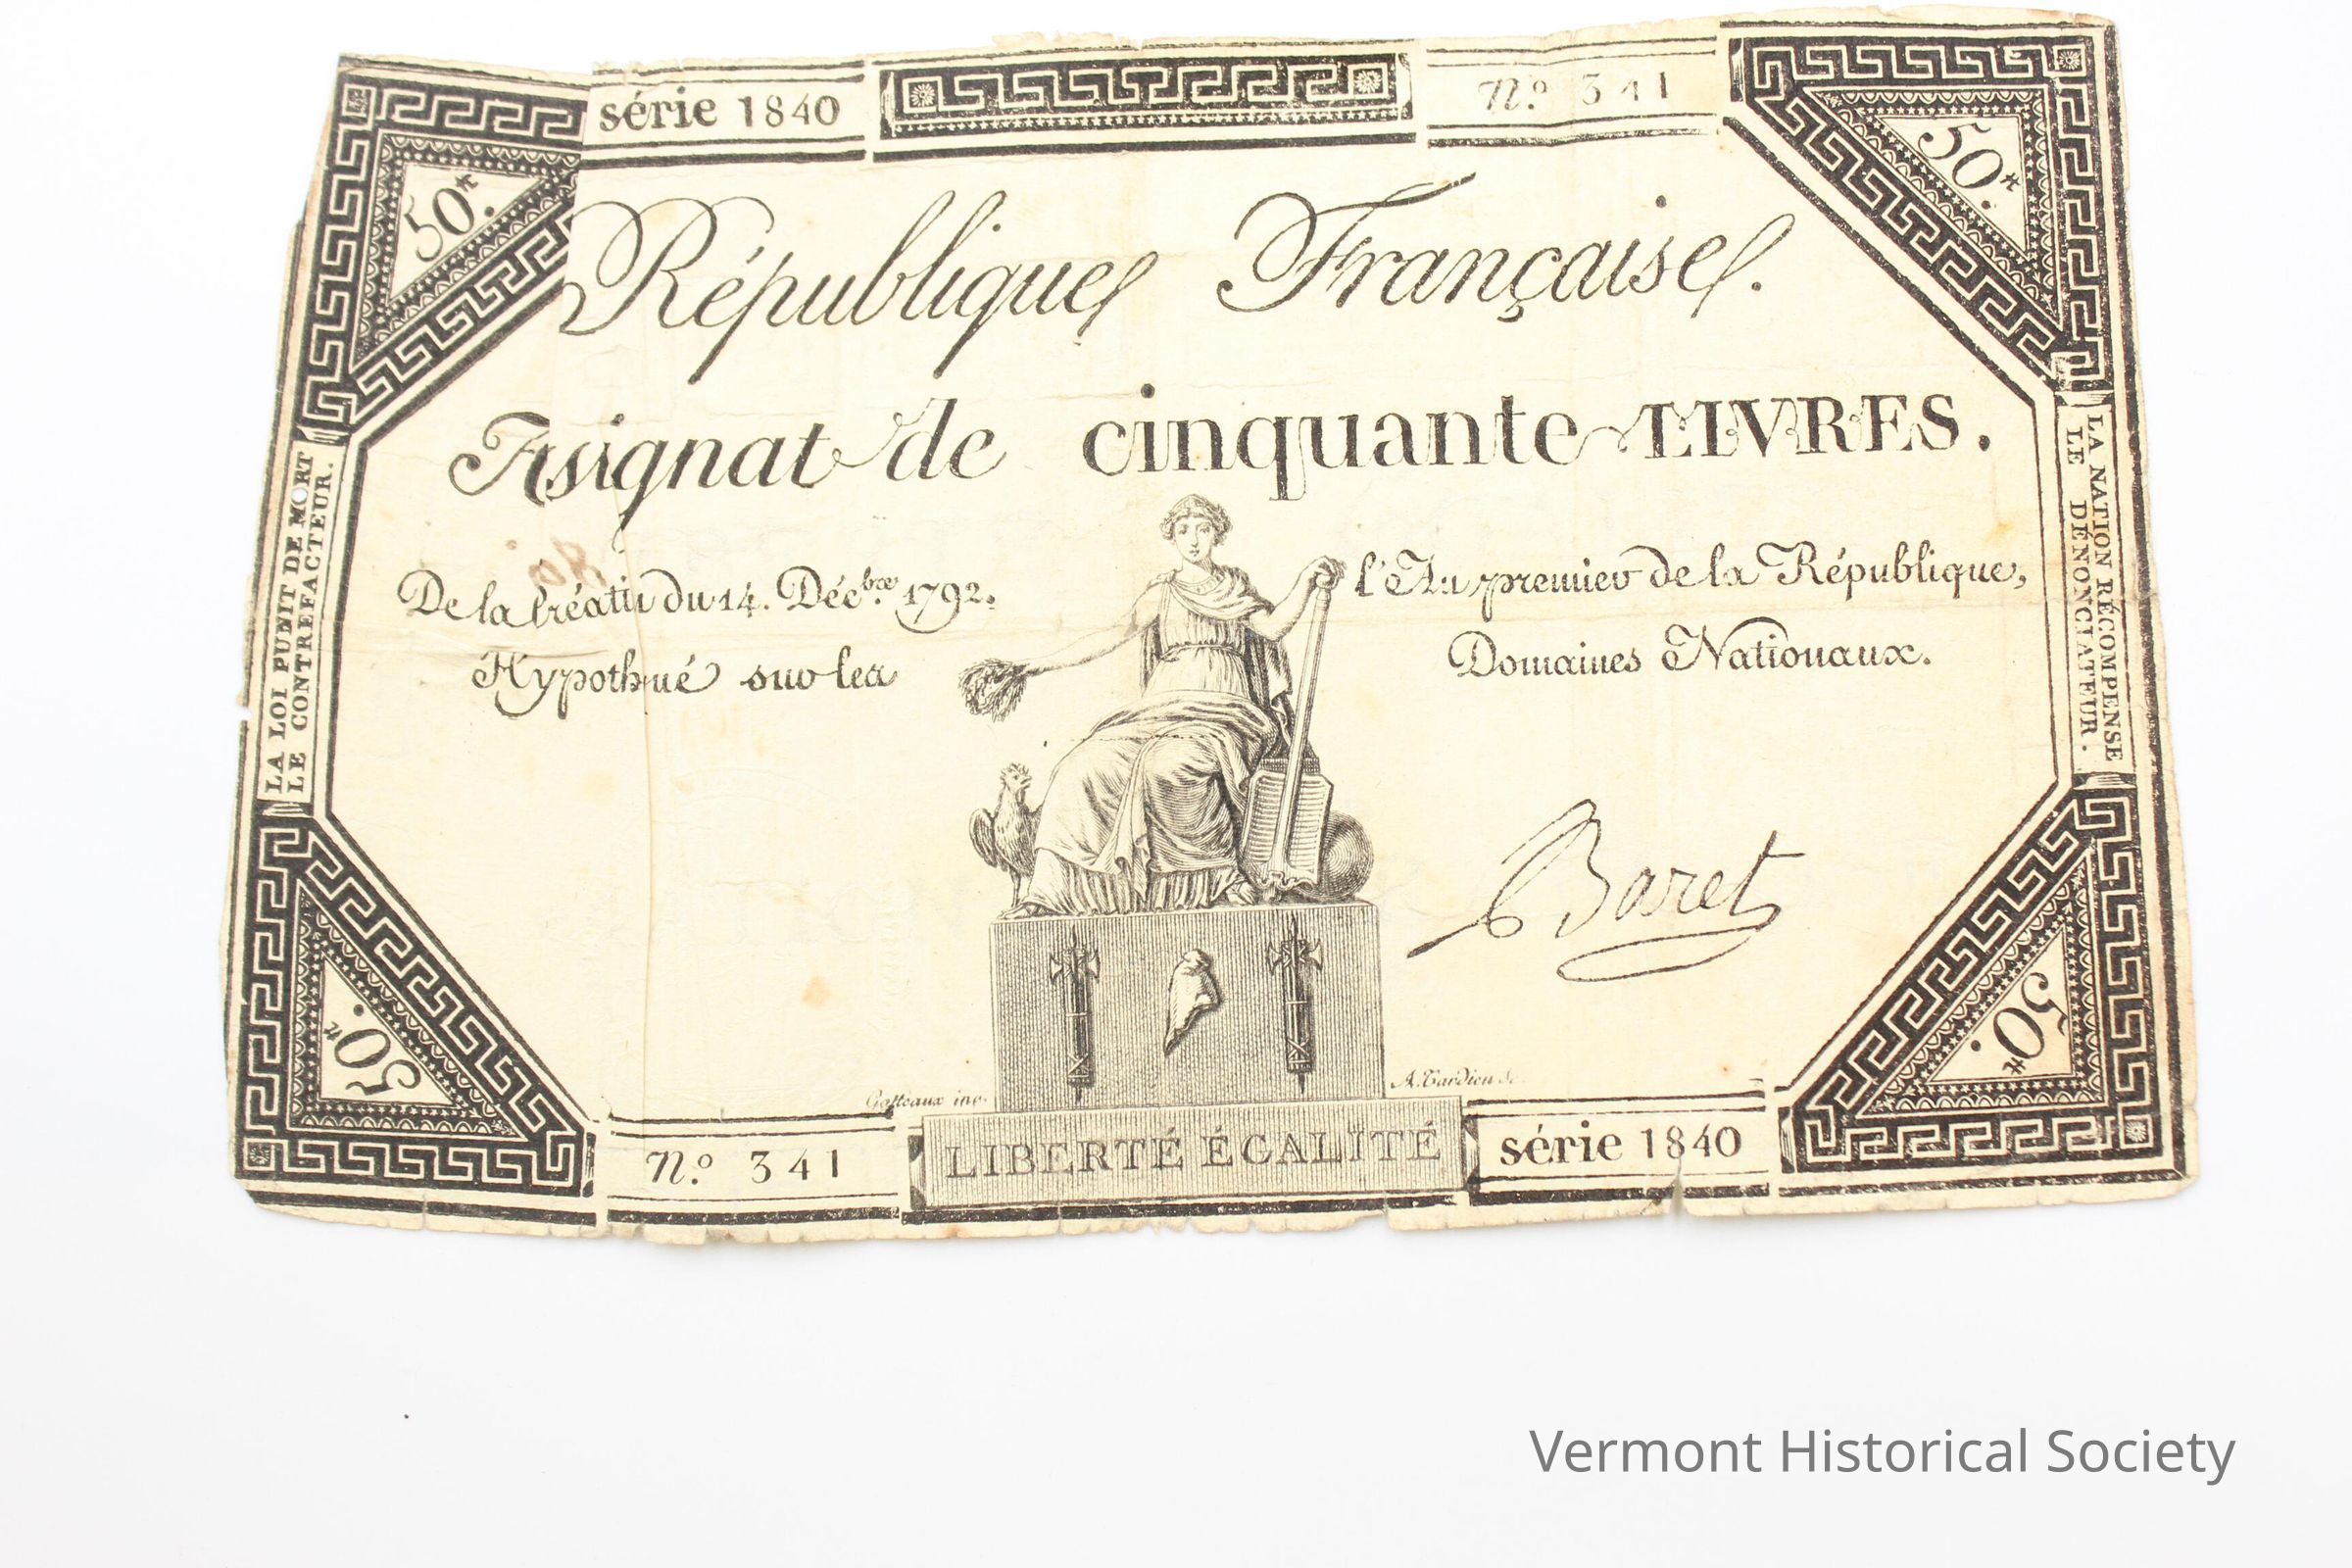 série 1840
N.º 341
50.₶
50.₶
République Française.
Assignat de cinquante LIVRES.
LA LOI PUNIT DE MORT
LE CONTREFACTEUR.
LA NATION RÉCOMPENSE
LE DÉNONCIATEUR.
De la Créatiu du 14. Déc.bre 1792.
l'An premier de la République,
Hypothqué sur les
Domaines Nationaux.
Baret
50.₶
50.₶
Gatteaux inv.
A. Tardieu Sc.
N.º 341
LIBERTÉ ÉGALITÉ
série 1840
Vermont Historical Society